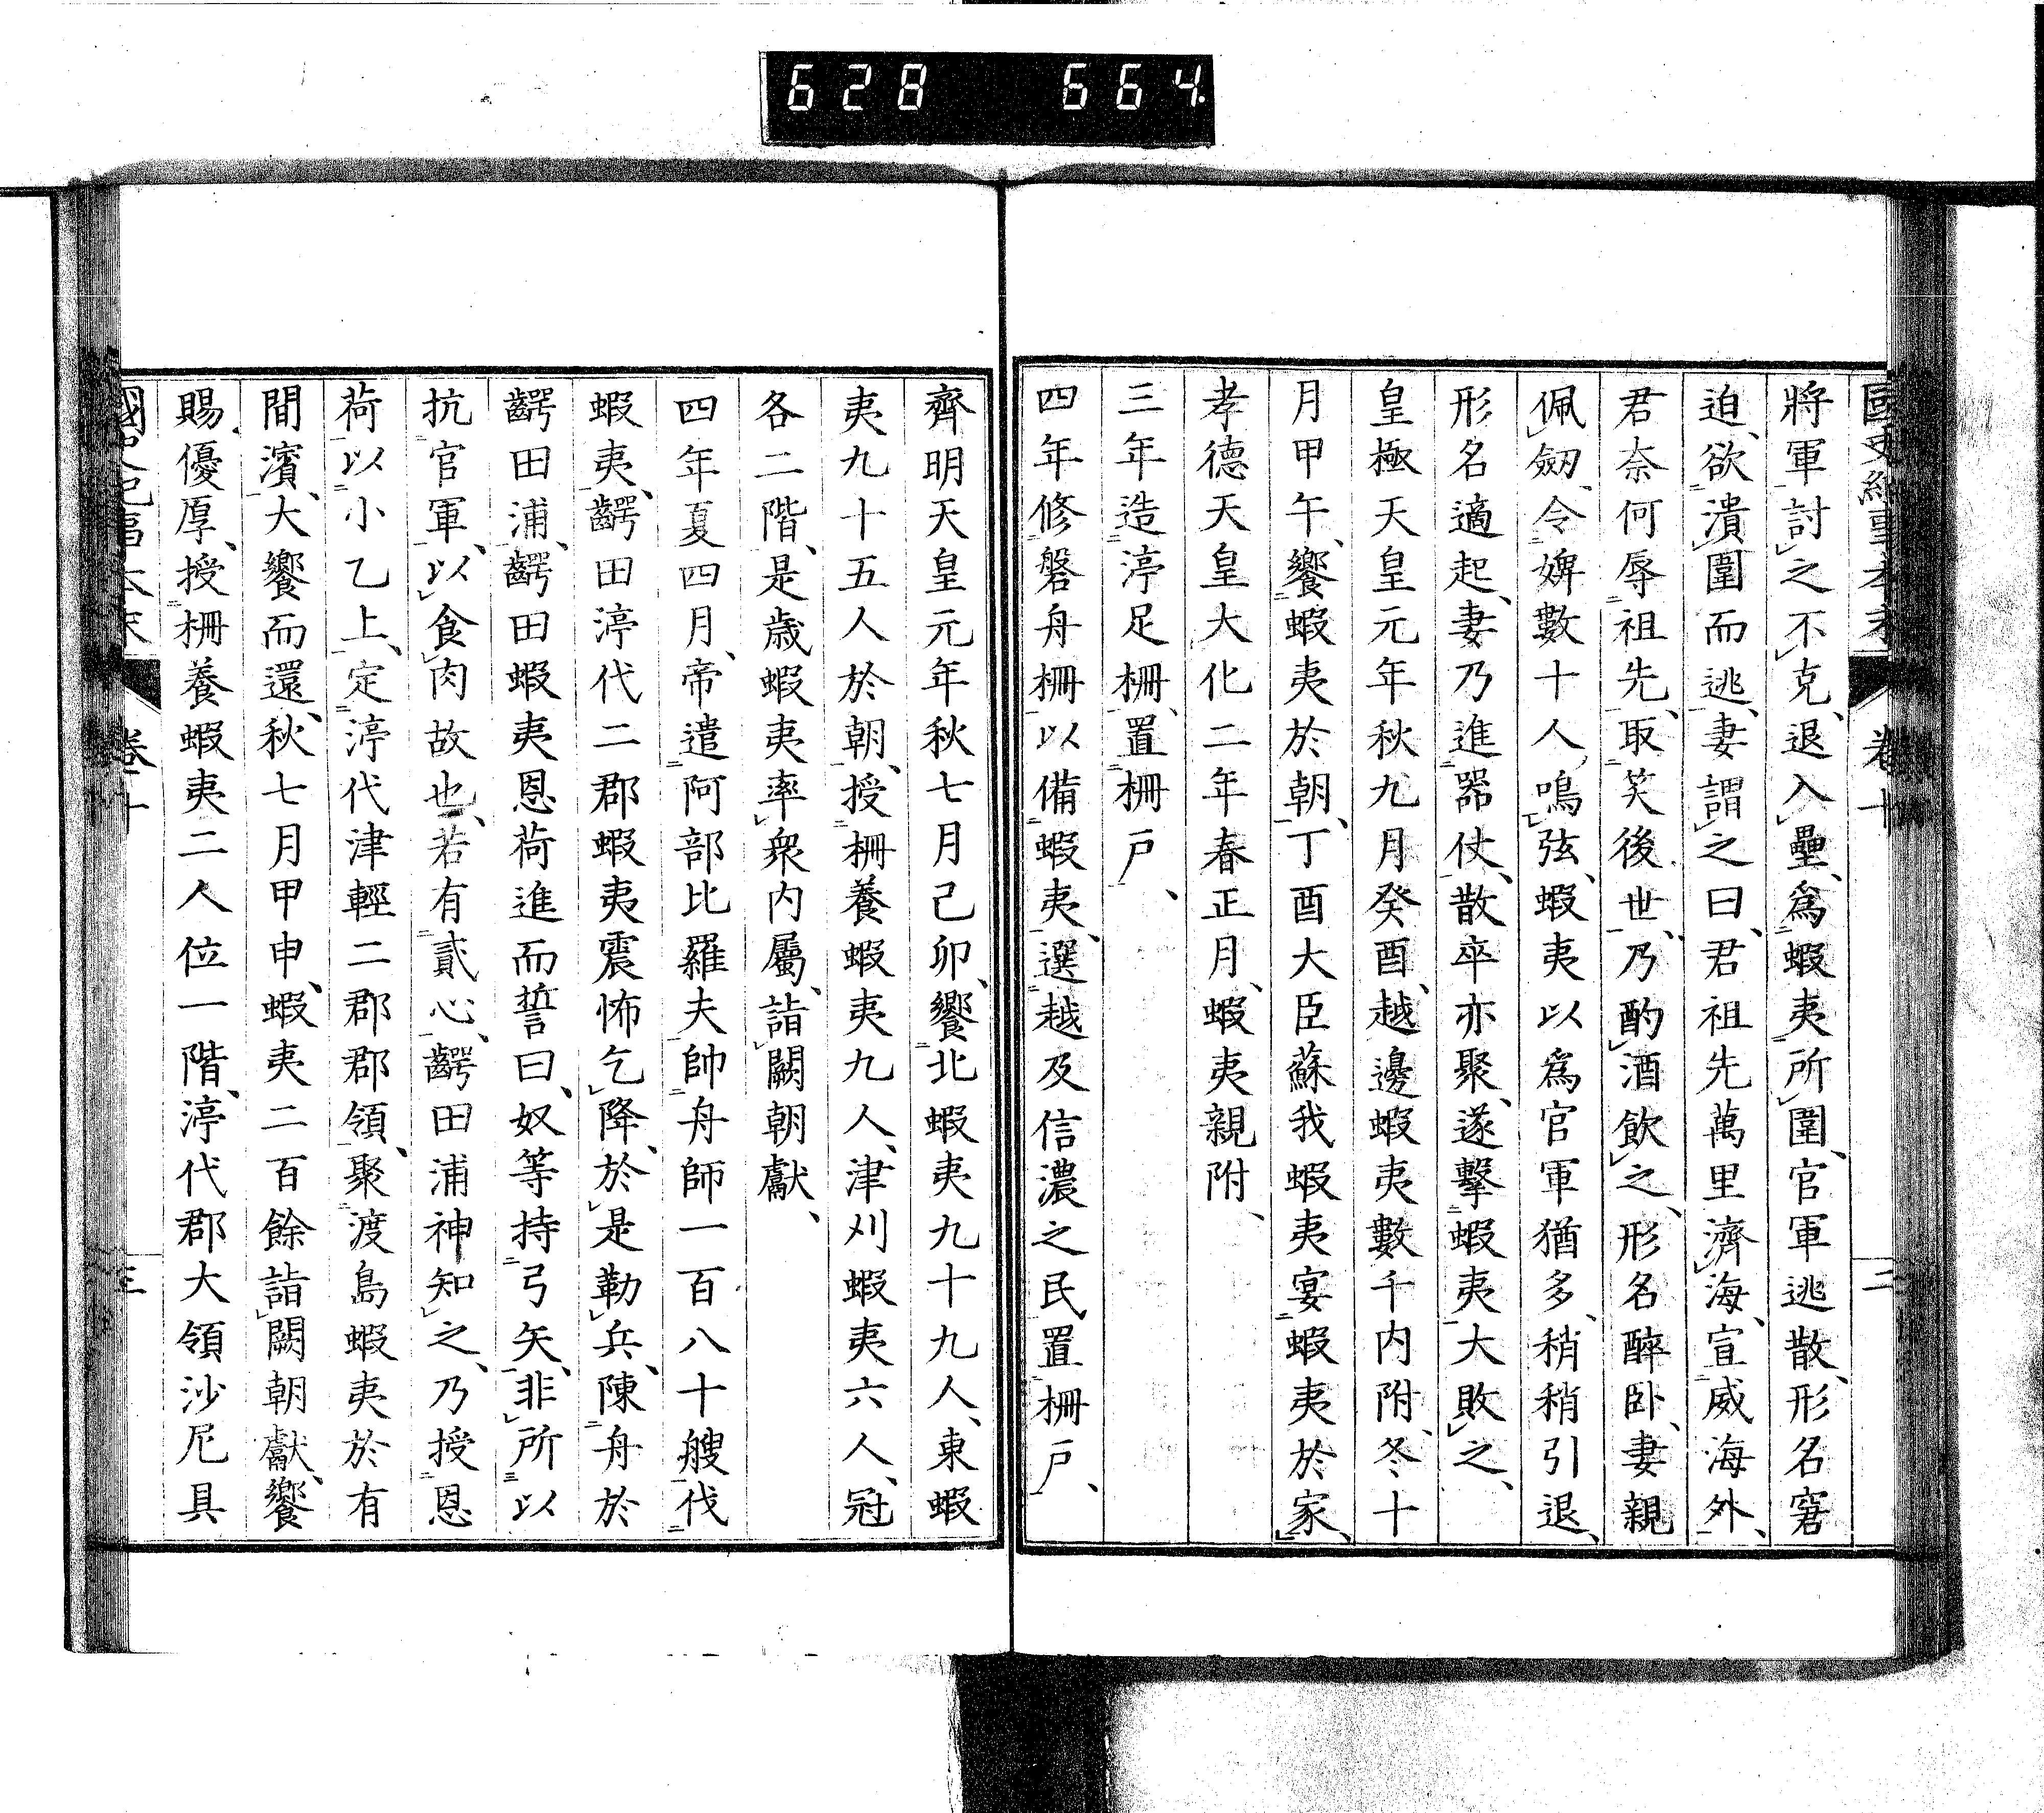 628 664
國史紀事本末 卷十 二
將軍討之不克、退入壘、爲蝦夷所圍、官軍逃散、形名窘
迫、欲潰圍而逃、妻謂之曰、君祖先萬里濟海、宣威海外、
君奈何辱祖先、取笑後世、乃酌酒飲之、形名醉臥、妻親
佩劒、令婢數十人、鳴弦、蝦夷以爲官軍猶多、稍稍引退、
形名適起、妻乃進器仗、散卒亦聚、遂擊蝦夷、大敗之、
皇極天皇元年秋九月癸酉、越邊蝦夷數千內附、冬十
月甲午、饗蝦夷於朝、丁酉大臣蘇我蝦夷宴蝦夷於家、
孝德天皇大化二年春正月、蝦夷親附、
三年造渟足柵、置柵戶、
四年修磐舟柵以備蝦夷、選越及信濃之民、置柵戶、
齊明天皇元年秋七月己卯、饗北蝦夷九十九人、東蝦
夷九十五人於朝、授柵養蝦夷九人、津刈蝦夷六人、冠
各二階、是歲蝦夷率衆內屬、詣闕朝獻、
四年夏四月、帝遣阿部比羅夫帥舟師一百八十艘伐
蝦夷、齶田渟代二郡蝦夷震怖乞降、於是勒兵、陳舟於
齶田浦、齶田蝦夷恩荷進而誓曰、奴等持弓矢、非所以
抗官軍、以食肉故也、若有貳心、齶田浦神知之、乃授恩
荷以小乙上、定渟代津輕二郡郡領、聚渡島蝦夷於有
間濱、大饗而還、秋七月甲申、蝦夷二百餘詣闕朝獻、饗
賜優厚、授柵養蝦夷二人位一階、渟代郡大領沙尼具
國史紀事本末 卷十 三